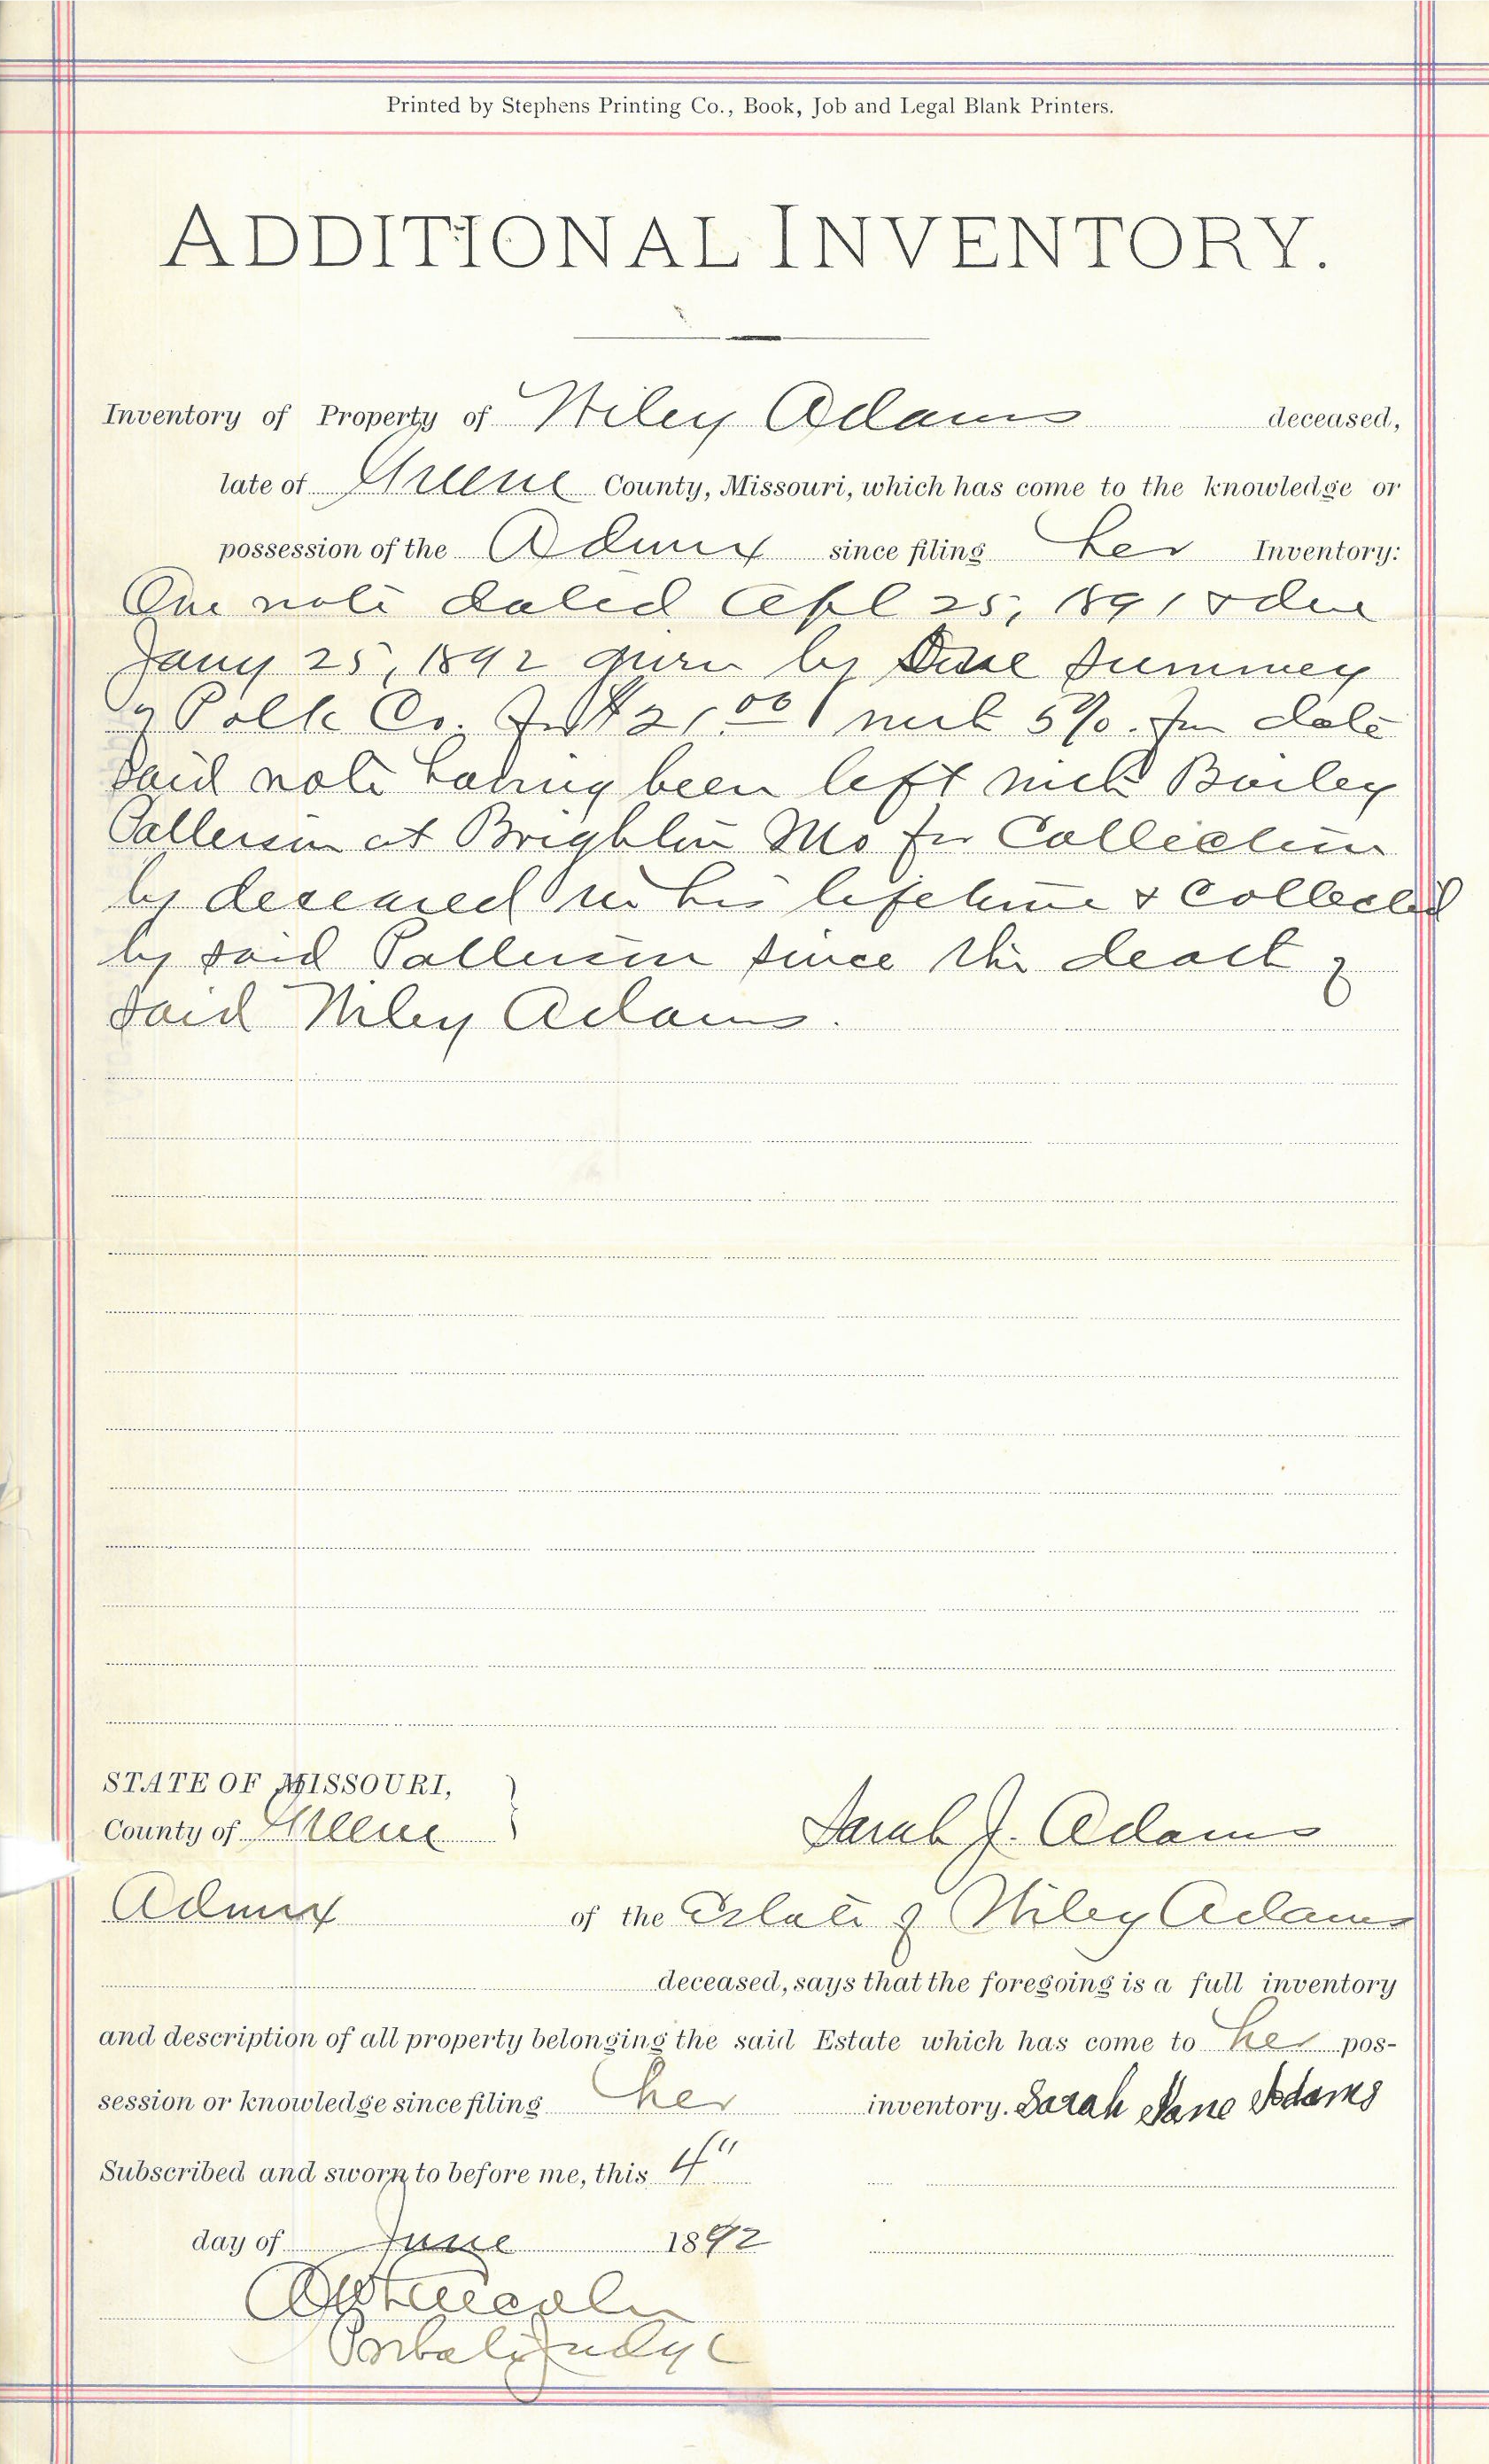 Printed by Stephens Printing Co., Book, Job and Legal Blank Printers.
ADDITIONAL INVENTORY.
Inventory of Property of Wiley Adams deceased,
late of Greene County, Missouri, which has come to the knowledge or
possession of the Admx since filing her Inventory:
One note dated Apl 25, 1891 & due
Jany 25, 1892 given by Summey
of Polk Co. for $21.00 with 5%. fm date
said note having been left with Bailey
Patterson at Brighton Mo for Collection
by deceased in his lifetime & Collected
by said Patterson since the death of
said Wiley Adams.
STATE OF MISSOURI,
County of Greene
Sarah J. Adams
Admx of the Estate of Wiley Adams
deceased, says that the foregoing is a full inventory
and description of all property belonging the said Estate which has come to her pos-
session or knowledge since filing her inventory. Sarah Jane Adams
Subscribed and sworn to before me, this 4"
day of June 1892
Probate Judge